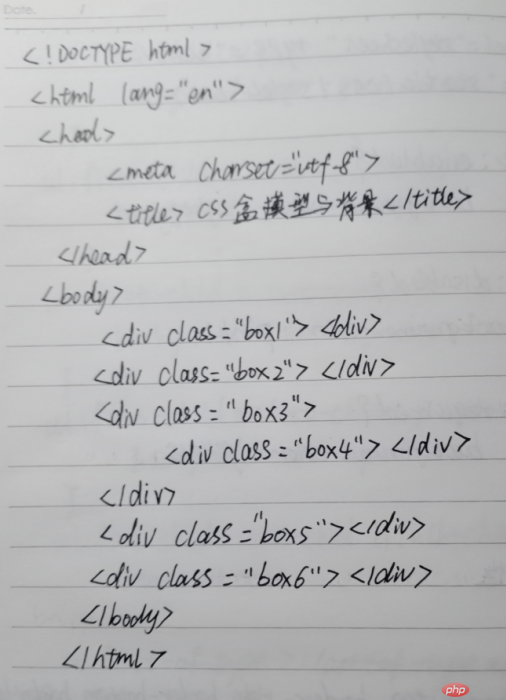 Date. /
<!DOCTYPE html>
<html lang="en">
<head>
<meta charset="utf-8">
<title> CSS盒模型与背景</title>
</head>
<body>
<div class="box1"> <div>
<div class="box2"> </div>
<div class="box3">
<div class="box4"> </div>
</div>
<div class="box5"></div>
<div class="box6"> </div>
</body>
</html>
php